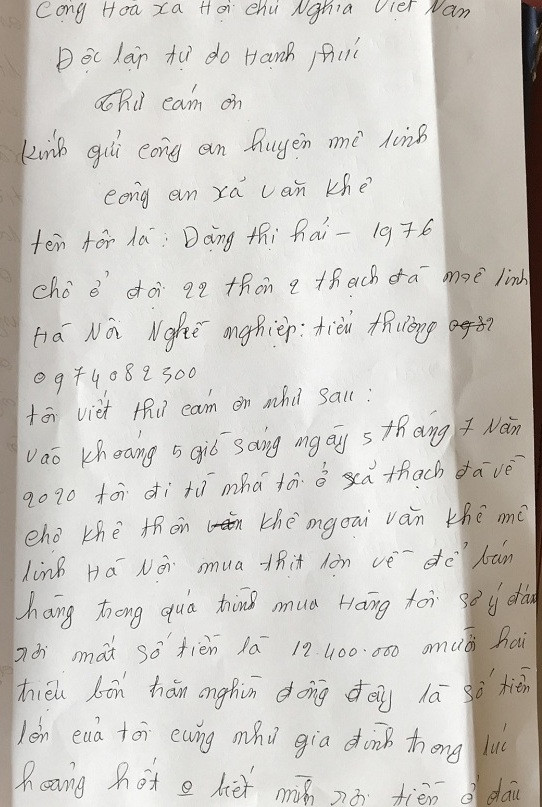 Cộng Hoà xa Hội chủ Nghĩa Việt Nam
Độc lập tự do Hạnh phúc
Thư cảm ơn
Kính gửi công an huyện mê linh
công an xá văn khê
tên tôi là: Đặng thị hải - 1976
chỗ ở đội 22 thôn 2 thạch đà mê linh
Hà Nội Nghề nghiệp: tiểu thương
0974082300
tôi viết thư cảm ơn như sau:
vào khoảng 5 giờ sáng ngày 5 tháng 7 Năm
2020 tôi đi từ nhà tôi ở xả thạch đà về
chợ khê thôn khê ngoại văn khê mê
linh Hà Nội mua thịt lợn về để bán
hàng trong quá trình mua Hàng tôi sơ ý đán
rơi mất số tiền là 12.400.000 mười hai
triệu bốn trăn nghìn đồng đây là số tiền
lớn của tôi cũng như gia đình trong lúc
hoảng hốt biết mình rơi tiền ở đâu